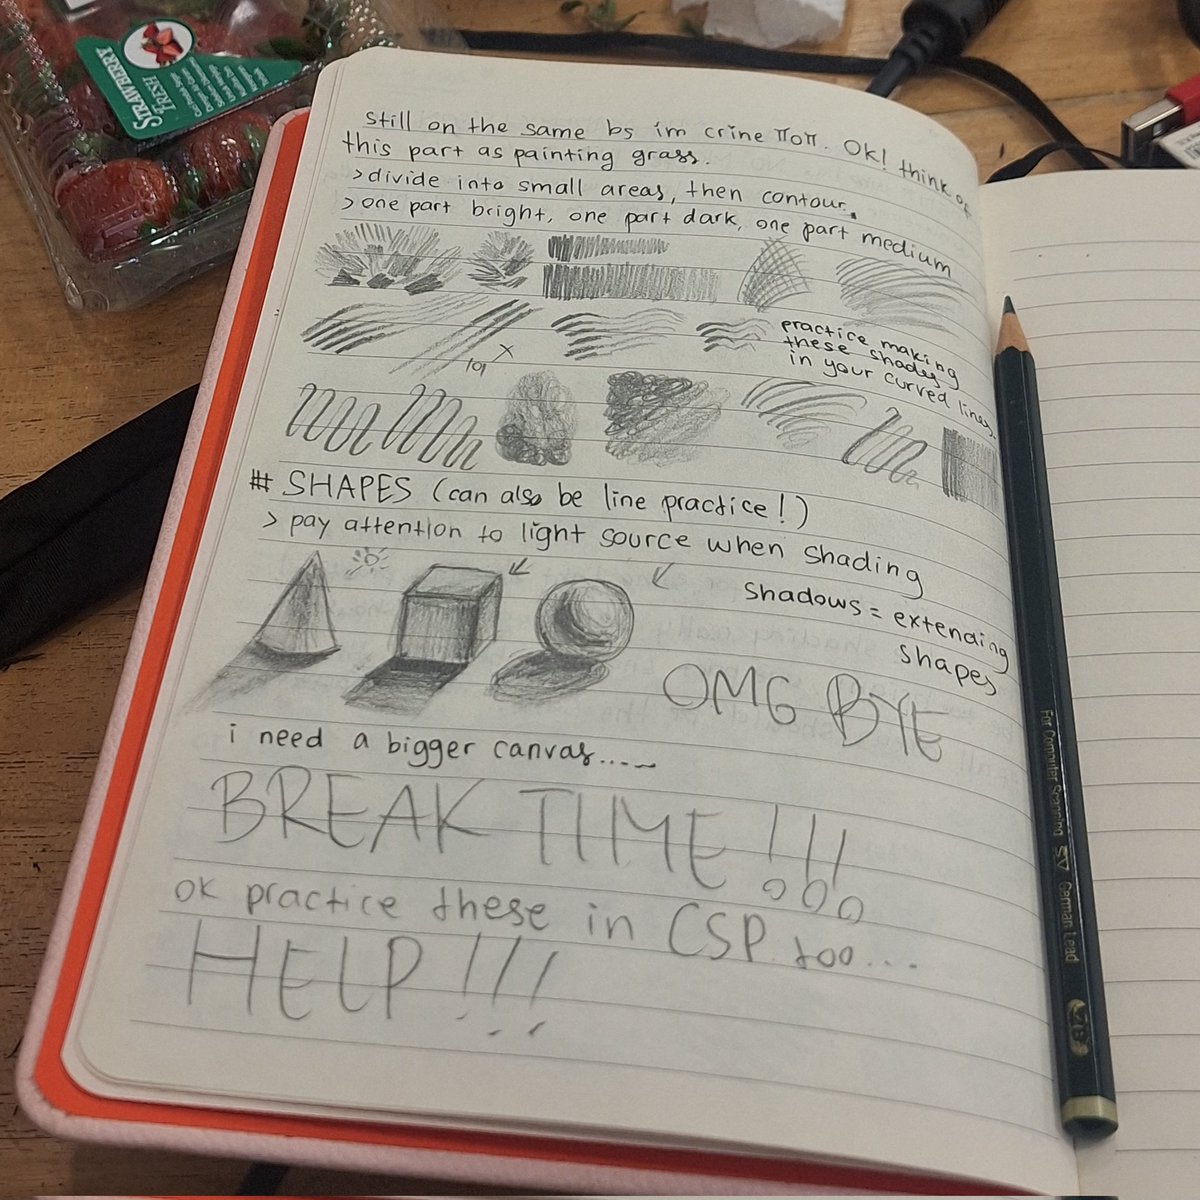 STRAWBERRY
FRESH
still on the same bs im crine πOπ. OK! think of
this part as painting grass.
> divide into small areas, then contour.
> one part bright, one part dark, one part medium
practice making
these shades
in your curved lines.
# SHAPES (can also be line practice!)
> pay attention to light source when shading
shadows = extending
shapes
OMG BYE
i need a bigger canvas.....
BREAK TIME!!!
ok practice these in CSP too...
HELP!!!
For Computer Scanning
German Lead
2B